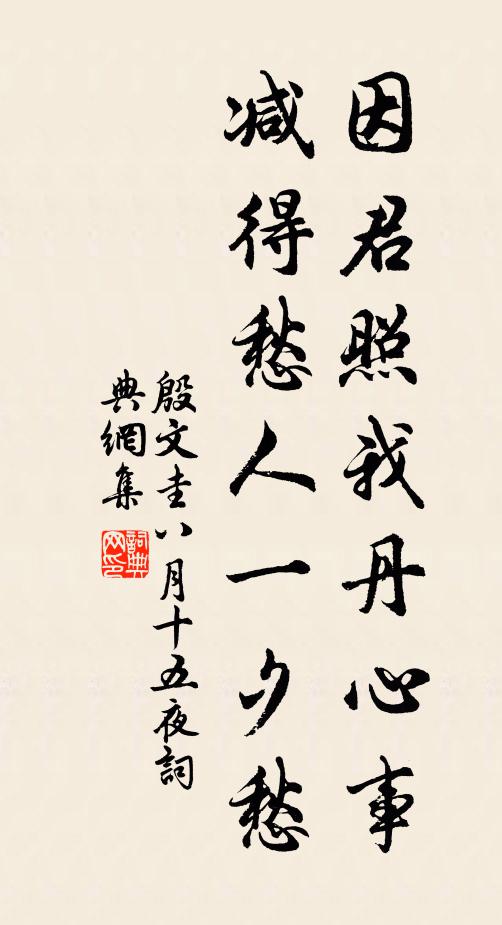 因君照我丹心事
减得愁人一夕愁
殷文圭八月十五夜詞
典網集
詞典网印